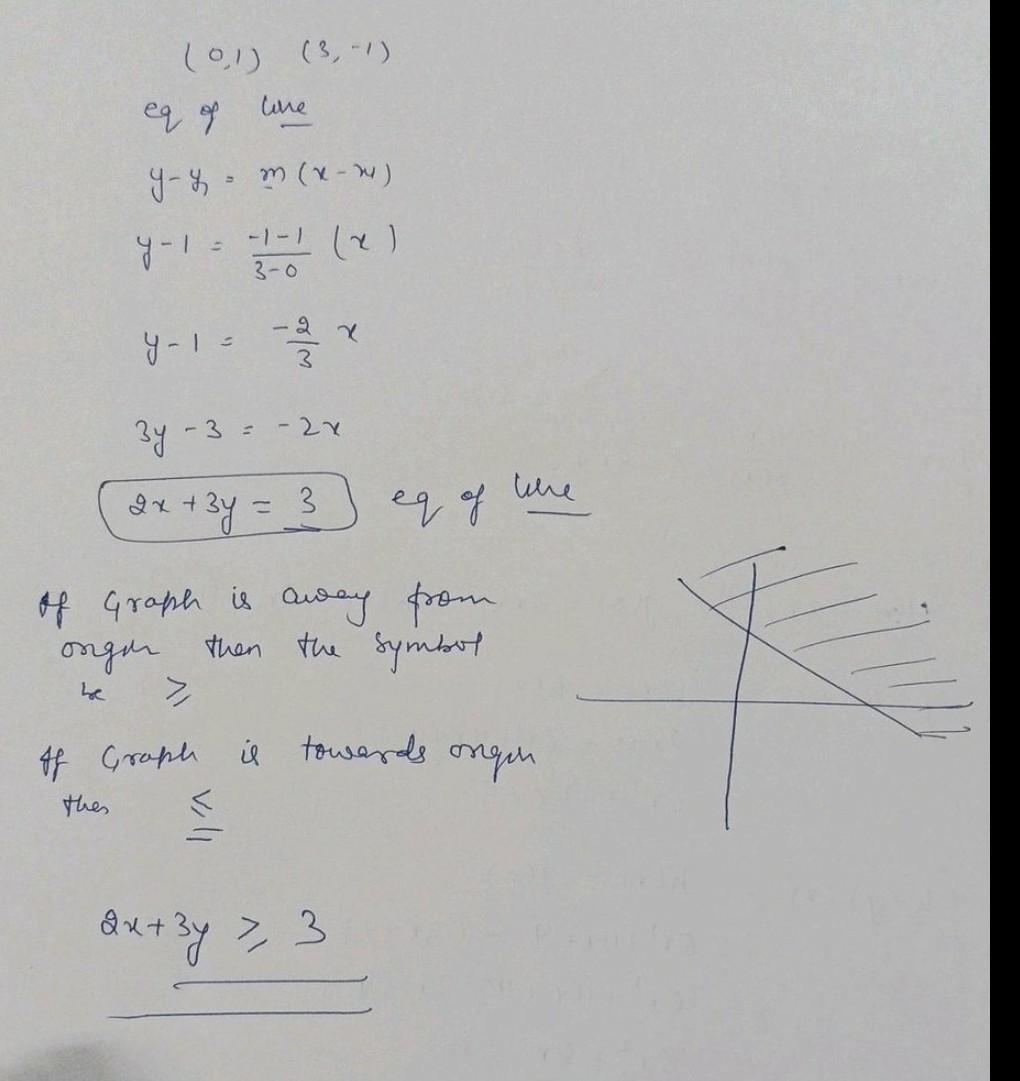 (0,1) (3,-1)
eq of line
y-y₁ = m(x-x₁)
y-1 = \frac{-1-1}{3-0} (x )
y-1 = \frac{-2}{3} x
3y - 3 = -2x
2x + 3y = 3 eq of line
If Graph is away from
origin then the symbol
be ≥
If Graph is towards origin
then ≤
2x+3y ≥ 3